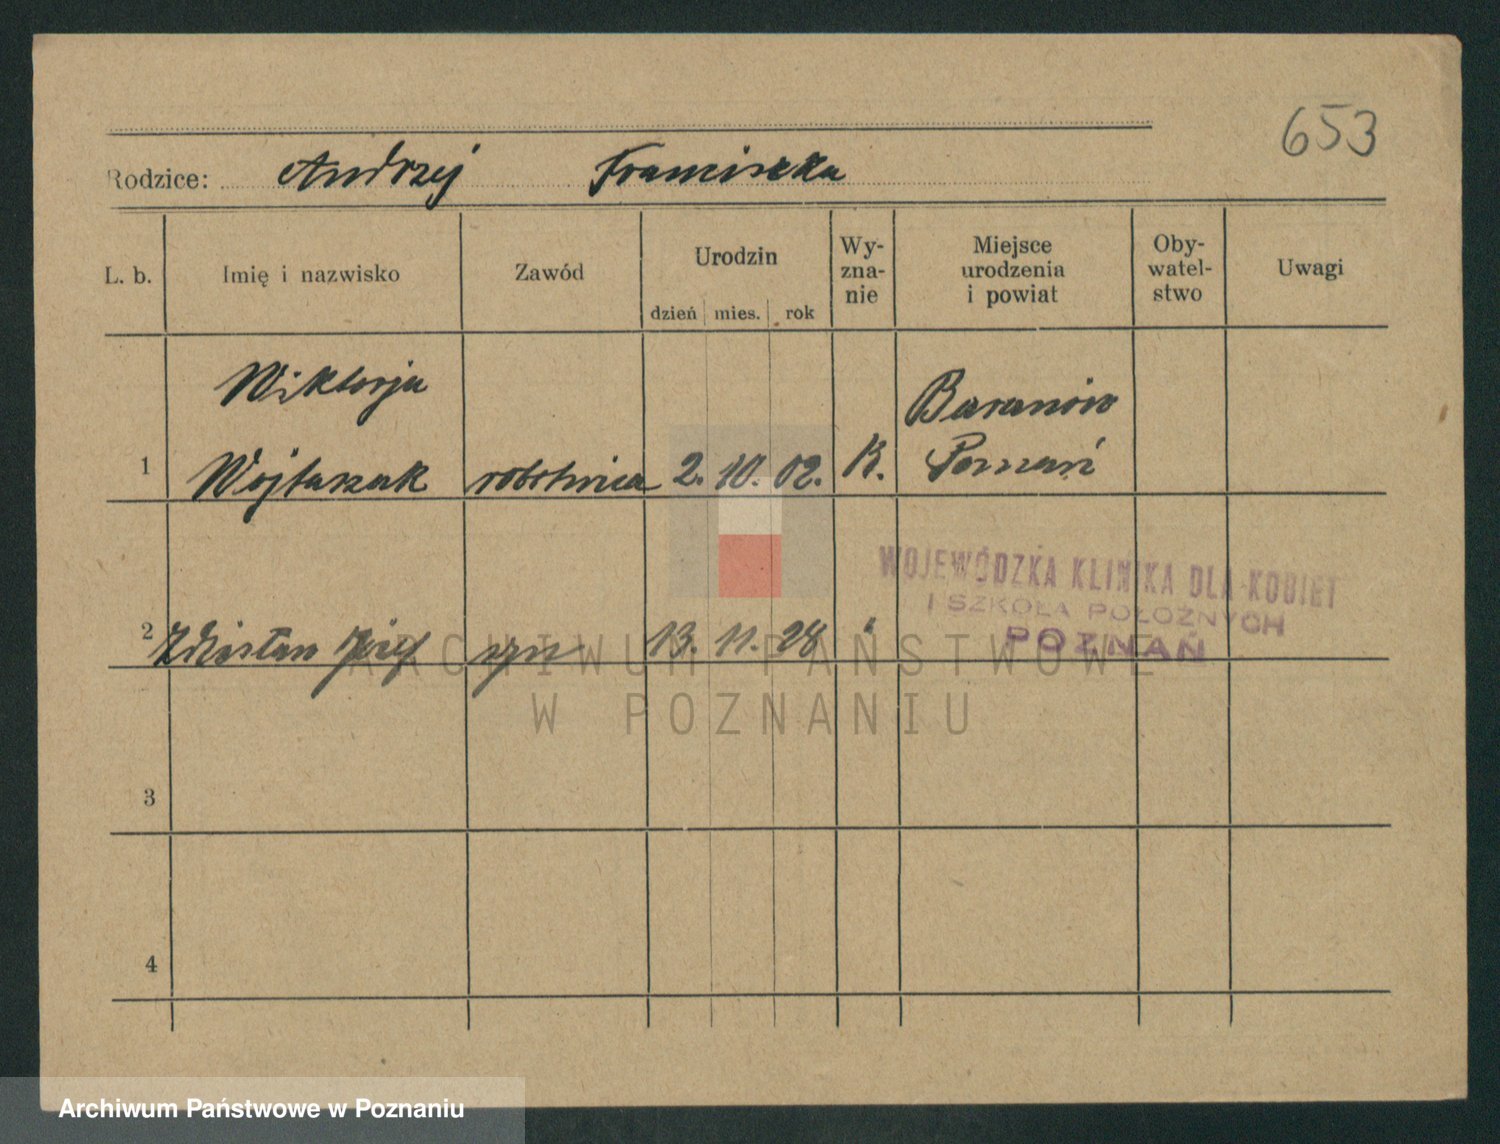 653
Rodzice: Andrzej Franciszka
L. b. Imię i nazwisko Zawód Urodzin Wy-zna-nie Miejsce urodzenia i powiat Oby-watel-stwo Uwagi
dzień mies. rok
Wiktorja Baranów
1 Wojtaszak robotnica 2. 10. 02. K. Poznań
WOJEWÓDZKA KLINIKA DLA KOBIET
I SZKOŁA POŁOŻNYCH
POZNAŃ
2 Zdzisław Józef syn 13. 11. 28 "
ARCHIWUM PAŃSTWOWE
W POZNANIU
3
4
Archiwum Państwowe w Poznaniu